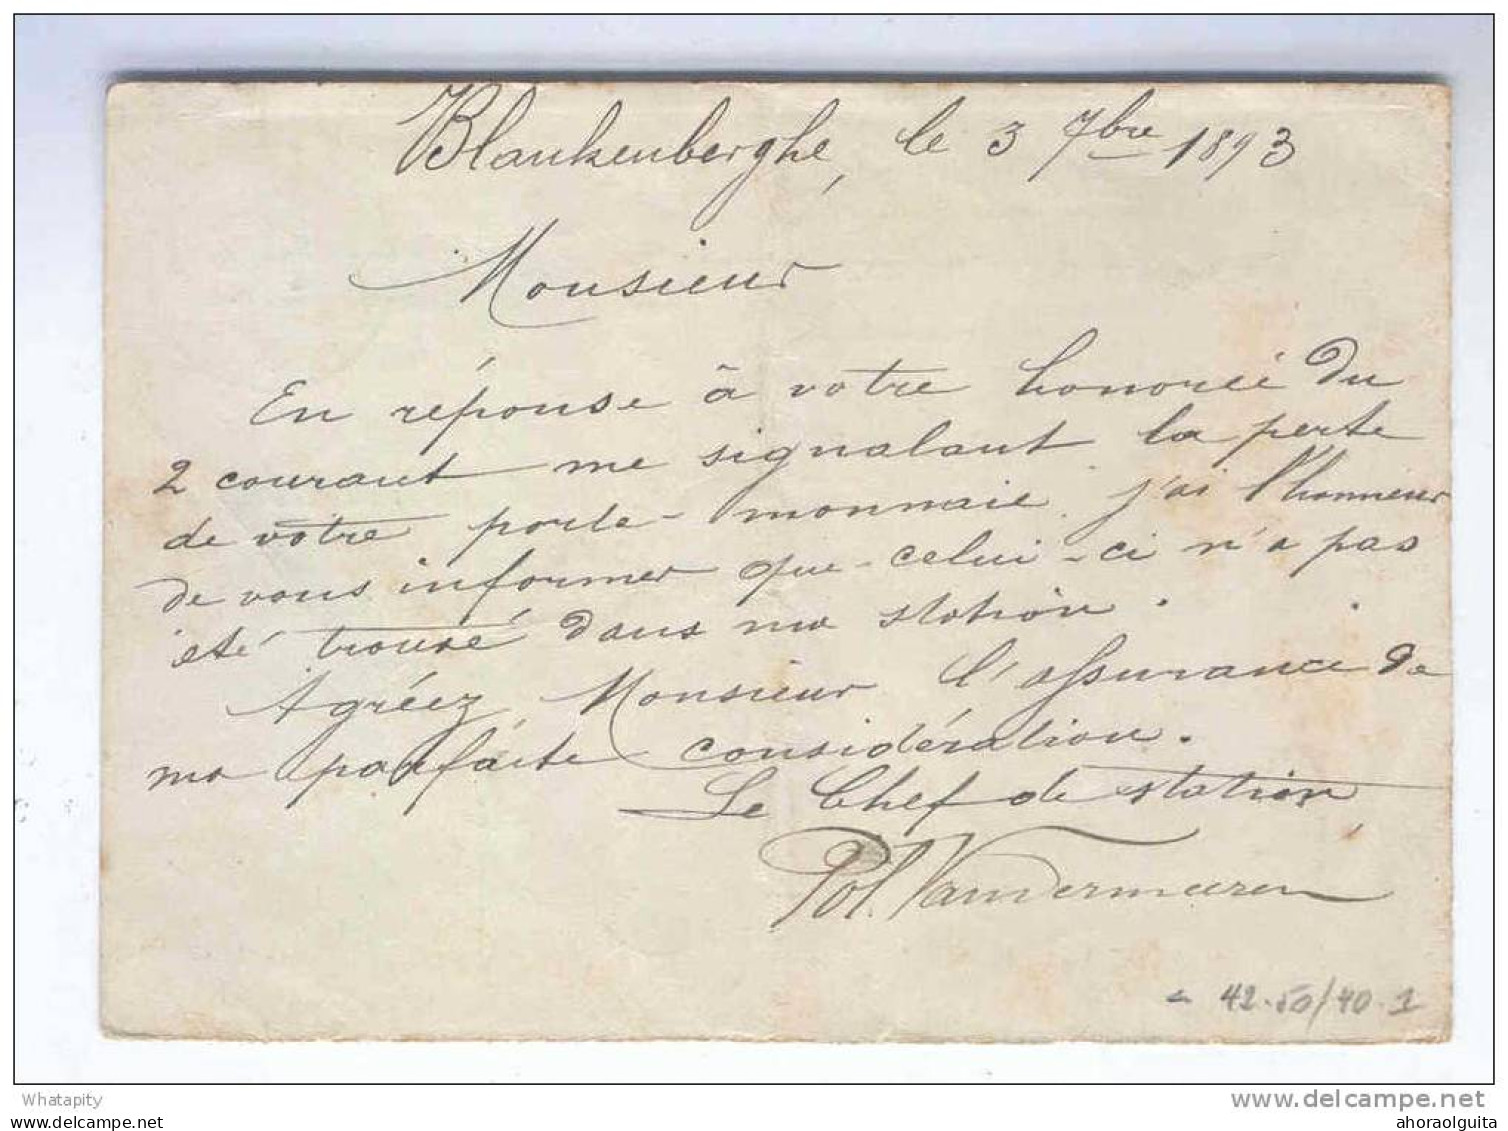 Blankenberghe, le 3 7bre 1893
Monsieur
En réponse à votre honorée du
2 courant me signalant la perte
de votre porte-monnaie, j'ai l'honneur
de vous informer que celui-ci n'a pas
été trouvé dans ma station.
Agréez, Monsieur l'assurance de
ma parfaite considération.
Le Chef de station,
Pol. Vandermeeren
42.50/40.1
Whatapity
www.delcampe.net
delcampe.net
ahoraolguita